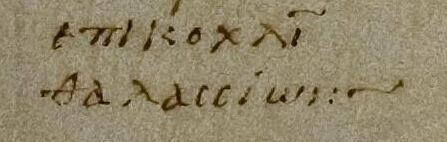 ἐπὶ κοχλι῀
θαλασσίων:~